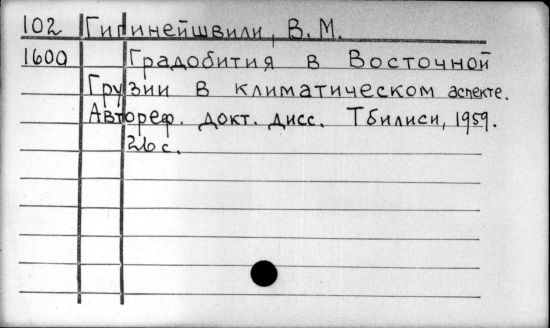 102 Гигинейшвили, В. М.
1600 Градобития в Восточной
Грузии в климатическом аспекте.
Автореф. докт. дисс. Тбилиси, 1959.
26 с.